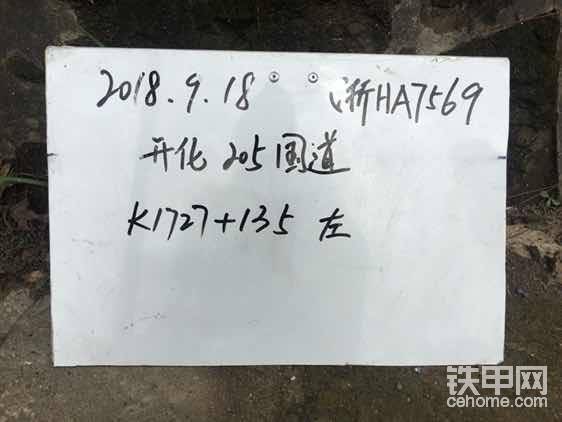 2018.9.18 浙HA7569
开化 205国道
K1727+135 左
铁甲网
cehome.com